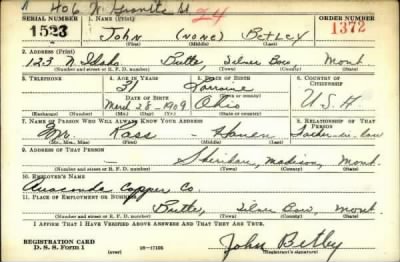 406 W. Granite St I-4
SERIAL NUMBER 1. NAME (Print) ORDER NUMBER
1523 John (NONE) Betley 1372
(First) (Middle) (Last)
2. ADDRESS (Print)
123 N. Idaho Butte Silver Bow Mont.
(Number and street or R. F. D. number) (Town) (County) (State)
3. TELEPHONE 4. AGE IN YEARS 5. PLACE OF BIRTH 6. COUNTRY OF CITIZENSHIP
31 Lorraine
DATE OF BIRTH (Town or county)
March 28-1909 Ohio U.S.A
(Exchange) (Number) (Mo.) (Day) (Yr.) (State or country)
7. NAME OF PERSON WHO WILL ALWAYS KNOW YOUR ADDRESS 8. RELATIONSHIP OF THAT PERSON
Mr. Ross Father-in-law
(Mr., Mrs., Miss) (First) (Middle) (Last)
9. ADDRESS OF THAT PERSON
Sheridan, Madison, Mont.
(Number and street or R. F. D. number) (Town) (County) (State)
10. EMPLOYER'S NAME
Anaconda Copper Co.
11. PLACE OF EMPLOYMENT OR BUSINESS
Butte, Silver Bow, Mont.
(Number and street or R. F. D. number) (Town) (County) (State)
I AFFIRM THAT I HAVE VERIFIED ABOVE ANSWERS AND THAT THEY ARE TRUE.
REGISTRATION CARD
D. S. S. Form 1 (over) 16-17105 John Betley